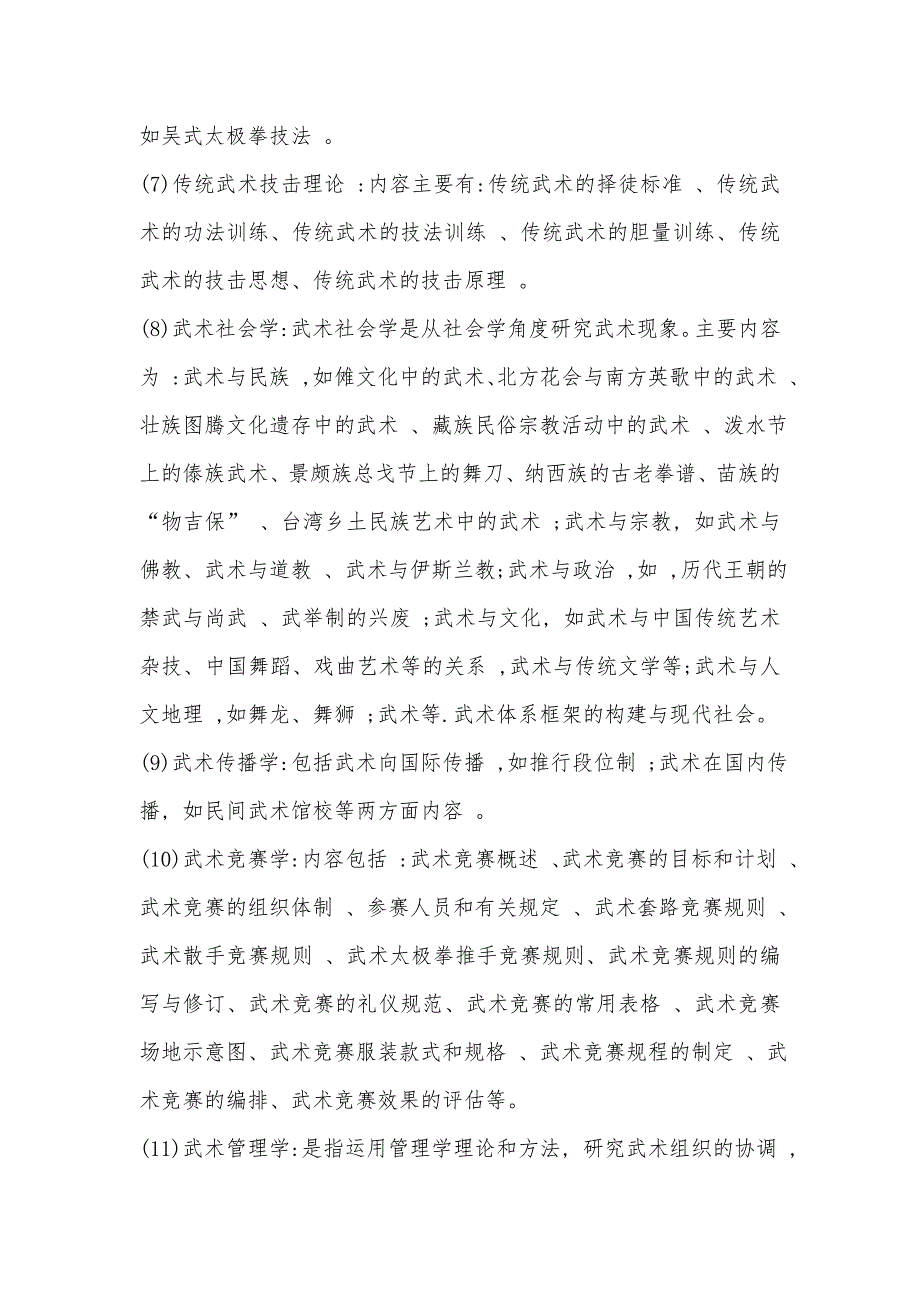 如吴式太极拳技法 。
(7)传统武术技击理论 :内容主要有:传统武术的择徒标准 、传统武
术的功法训练、传统武术的技法训练 、传统武术的胆量训练、传统
武术的技击思想、传统武术的技击原理 。
(8)武术社会学:武术社会学是从社会学角度研究武术现象。主要内容
为 :武术与民族 ,如傩文化中的武术、北方花会与南方英歌中的武术 、
壮族图腾文化遗存中的武术 、藏族民俗宗教活动中的武术 、泼水节
上的傣族武术、景颇族总戈节上的舞刀、纳西族的古老拳谱、苗族的
“物吉保” 、台湾乡土民族艺术中的武术 ;武术与宗教, 如武术与
佛教、武术与道教 、武术与伊斯兰教;武术与政治 ,如 ,历代王朝的
禁武与尚武 、武举制的兴废 ;武术与文化, 如武术与中国传统艺术
杂技、中国舞蹈、戏曲艺术等的关系 ,武术与传统文学等;武术与人
文地理 ,如舞龙、舞狮 ;武术等.武术体系框架的构建与现代社会。
(9)武术传播学:包括武术向国际传播 ,如推行段位制 ;武术在国内传
播, 如民间武术馆校等两方面内容 。
(10)武术竞赛学:内容包括 :武术竞赛概述 、武术竞赛的目标和计划 、
武术竞赛的组织体制 、参赛人员和有关规定 、武术套路竞赛规则 、
武术散手竞赛规则 、武术太极拳推手竞赛规则、武术竞赛规则的编
写与修订、武术竞赛的礼仪规范、武术竞赛的常用表格 、武术竞赛
场地示意图、武术竞赛服装款式和规格 、武术竞赛规程的制定 、武
术竞赛的编排、武术竞赛效果的评估等。
(11)武术管理学:是指运用管理学理论和方法, 研究武术组织的协调 ,